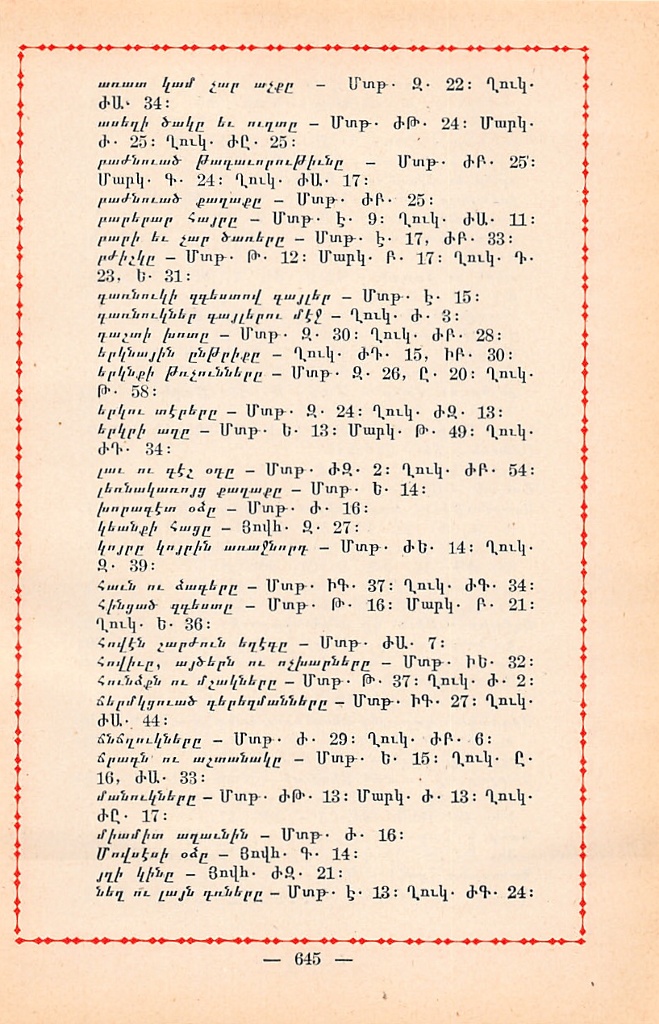 առատ կամ չար աչքը – Մտթ․ Զ․ 22։ Ղուկ․
ԺԱ․ 34։
ասեղի ծակը եւ ուղտը – Մտթ․ ԺԹ․ 24։ Մարկ․
Ժ․ 25։ Ղուկ․ ԺԸ․ 25։
բաժնուած թագաւորութիւնը – Մտթ․ ԺԲ․ 25։
Մարկ․ Գ․ 24։ Ղուկ․ ԺԱ․ 17։
բաժնուած քաղաքը – Մտթ․ ԺԲ․ 25։
բարերար Հայրը – Մտթ․ Է․ 9։ Ղուկ․ ԺԱ․ 11։
բարի եւ չար ծառերը – Մտթ․ Է․ 17, ԺԲ․ 33։
բժիշկը – Մտթ․ Թ․ 12։ Մարկ․ Բ․ 17։ Ղուկ․ Դ․
23, Ե․ 31։
գառնուկի զգեստով գայլեր – Մտթ․ Է․ 15։
գառնուկներ գայլերու մէջ – Ղուկ․ Ժ․ 3։
դաշտի խոտը – Մտթ․ Զ․ 30։ Ղուկ․ ԺԲ․ 28։
երկնային ընթրիքը – Ղուկ․ ԺԴ․ 15, ԻԲ․ 30։
երկնքի թռչունները – Մտթ․ Զ․ 26, Ը․ 20։ Ղուկ․
Թ․ 58։
երկու տէրերը – Մտթ․ Զ․ 24։ Ղուկ․ ԺԶ․ 13։
երկրի աղը – Մտթ․ Ե․ 13։ Մարկ․ Թ․ 49։ Ղուկ․
ԺԴ․ 34։
լաւ ու գէշ օդը – Մտթ․ ԺԶ․ 2։ Ղուկ․ ԺԲ․ 54։
լեռնակառոյց քաղաքը – Մտթ․ Ե․ 14։
խորագէտ օձը – Մտթ․ Ժ․ 16։
կեանքի հացը – Յովհ․ Զ․ 27։
կոյրը կոյրին առաջնորդ – Մտթ․ ԺԵ․ 14։ Ղուկ․
Զ․ 39։
հաւն ու ձագերը – Մտթ․ ԻԳ․ 37։ Ղուկ․ ԺԳ․ 34։
հինցած զգեստը – Մտթ․ Թ․ 16։ Մարկ․ Բ․ 21։
Ղուկ․ Ե․ 36։
հովէն շարժուն եղէգը – Մտթ․ ԺԱ․ 7։
հովիւը, այծերն ու ոչխարները – Մտթ․ ԻԵ․ 32։
հունձքն ու մշակները – Մտթ․ Թ․ 37։ Ղուկ․ Ժ․ 2։
ճերմկցուած գերեզմանները – Մտթ․ ԻԳ․ 27։ Ղուկ․
ԺԱ․ 44։
ճնճղուկները – Մտթ․ Ժ․ 29։ Ղուկ․ ԺԲ․ 6։
ճրագն ու աշտանակը – Մտթ․ Ե․ 15։ Ղուկ․ Ը․
16, ԺԱ․ 33։
մանուկները – Մտթ․ ԺԹ․ 13։ Մարկ․ Ժ․ 13։ Ղուկ․
ԺԸ․ 17։
միամիտ աղաւնին – Մտթ․ Ժ․ 16։
Մովսէսի օձը – Յովհ․ Գ․ 14։
յղի կինը – Յովհ․ ԺԶ․ 21։
նեղ ու լայն դռները – Մտթ․ Է․ 13։ Ղուկ․ ԺԳ․ 24։
— 645 —